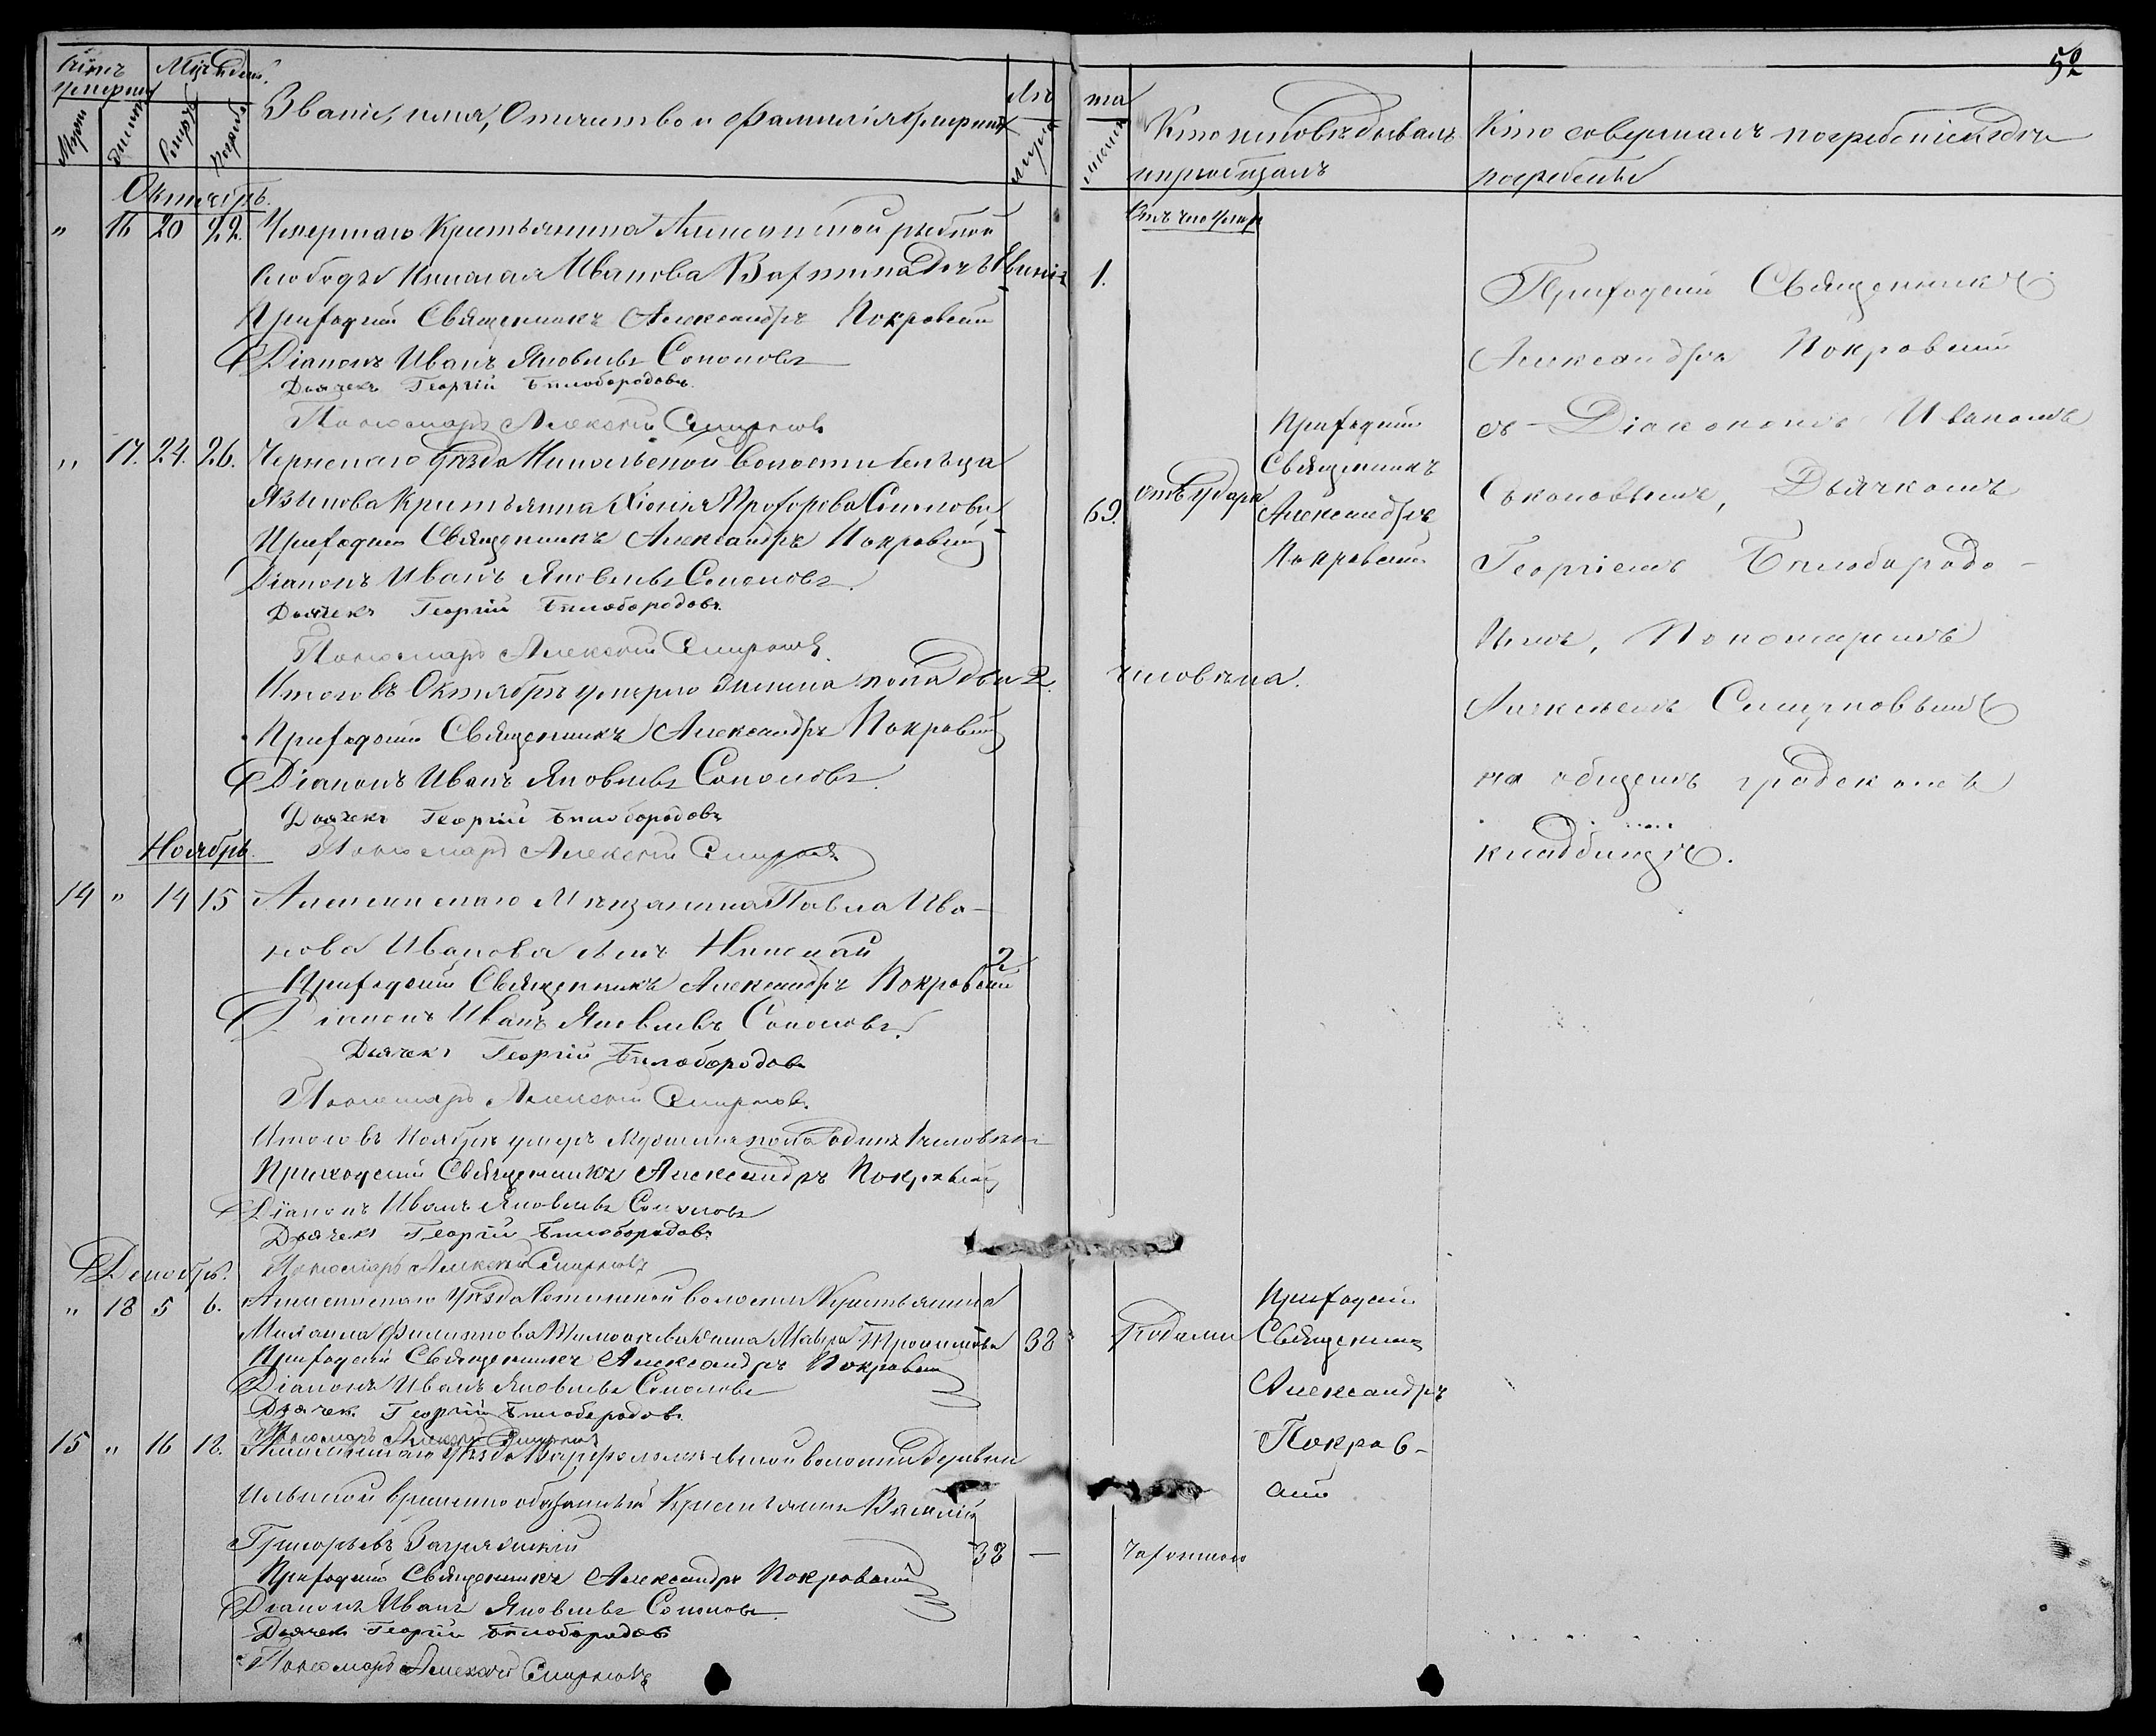 Мужеск
Женск
Звание, имя, отчество и фамилія умершихъ
Лѣ
та
Кто исповѣдывалъ
и пріобщалъ
Кто совершалъ погребеніе и гдѣ
погребены
52
Октябрь.
Отъ чего умеръ
" 16 20 22. Умершаго Крестьянина рыбной
слободы Николая Иванова дочь 1.
Приходскій Священникъ Александръ Покровскій
Діаконъ Иванъ Яковлевъ Соколовъ
Дьячекъ Георгій Бѣлобородовъ.
Пономарь Алексѣй Смирновъ
" 17. 24. 26. уѣзда Никольской волости сельца
Язykова Крестьянка Прохорова 69. отъ удара
Приходскій Священникъ Александръ Покровскій
Діаконъ Иванъ Яковлевъ Соколовъ.
Дьячекъ Георгій Бѣлобородовъ.
Пономарь Алексѣй Смирновъ.
Итого въ Октябрѣ умерло женска пола два 2. человѣка.
Приходскій Священникъ Александръ Покровскій
Діаконъ Иванъ Яковлевъ Соколовъ.
Дьячекъ Георгій Бѣлобородовъ
Пономарь Алексѣй Смирновъ
Приходскій
Священникъ
Александръ
Покровскій
Приходскій Священникъ
Александръ Покровскій
съ Діакономъ Иваномъ
Соколовымъ, Дьячкомъ
Георгіемъ Бѣлобородо-
вымъ, Пономаремъ
Алексѣемъ Смирновымъ
на общемъ градскомъ
кладбищѣ.
Ноябрь.
14 " 14 15 Мѣщанина Павла Ива-
нова Иванова сынъ Николай 2
Приходскій Священникъ Александръ Покровскій
Діаконъ Иванъ Яковлевъ Соколовъ.
Дьячекъ Георгій Бѣлобородовъ
Пономарь Алексѣй Смирновъ.
Итого въ Ноябрѣ умеръ мужеска пола одинъ 1 человѣкъ
Приходскій Священникъ Александръ Покровскій
Діаконъ Иванъ Яковлевъ Соколовъ
Дьячекъ Георгій Бѣлобородовъ
Пономарь Алексѣй Смирновъ
Декабрь.
" 18 5 6. уѣзда волости Крестьянина
Михаила Филиппова жена Мавра 38 Родами
Приходскій Священникъ Александръ Покровскій
Діаконъ Иванъ Яковлевъ Соколовъ
Дьячекъ Георгій Бѣлобородовъ.
Пономарь Алексѣй Смирновъ
15 " 16 18. уѣзда волости деревни
Ильинской временно обязанный Крестьянинъ Василій
Григорьевъ 38 —
Приходскій Священникъ Александръ Покровскій
Діаконъ Иванъ Яковлевъ Соколовъ
Дьячекъ Георгій Бѣлобородовъ
Пономарь Алексѣй Смирновъ
Приходскій
Священникъ
Александръ
Покров-
скій